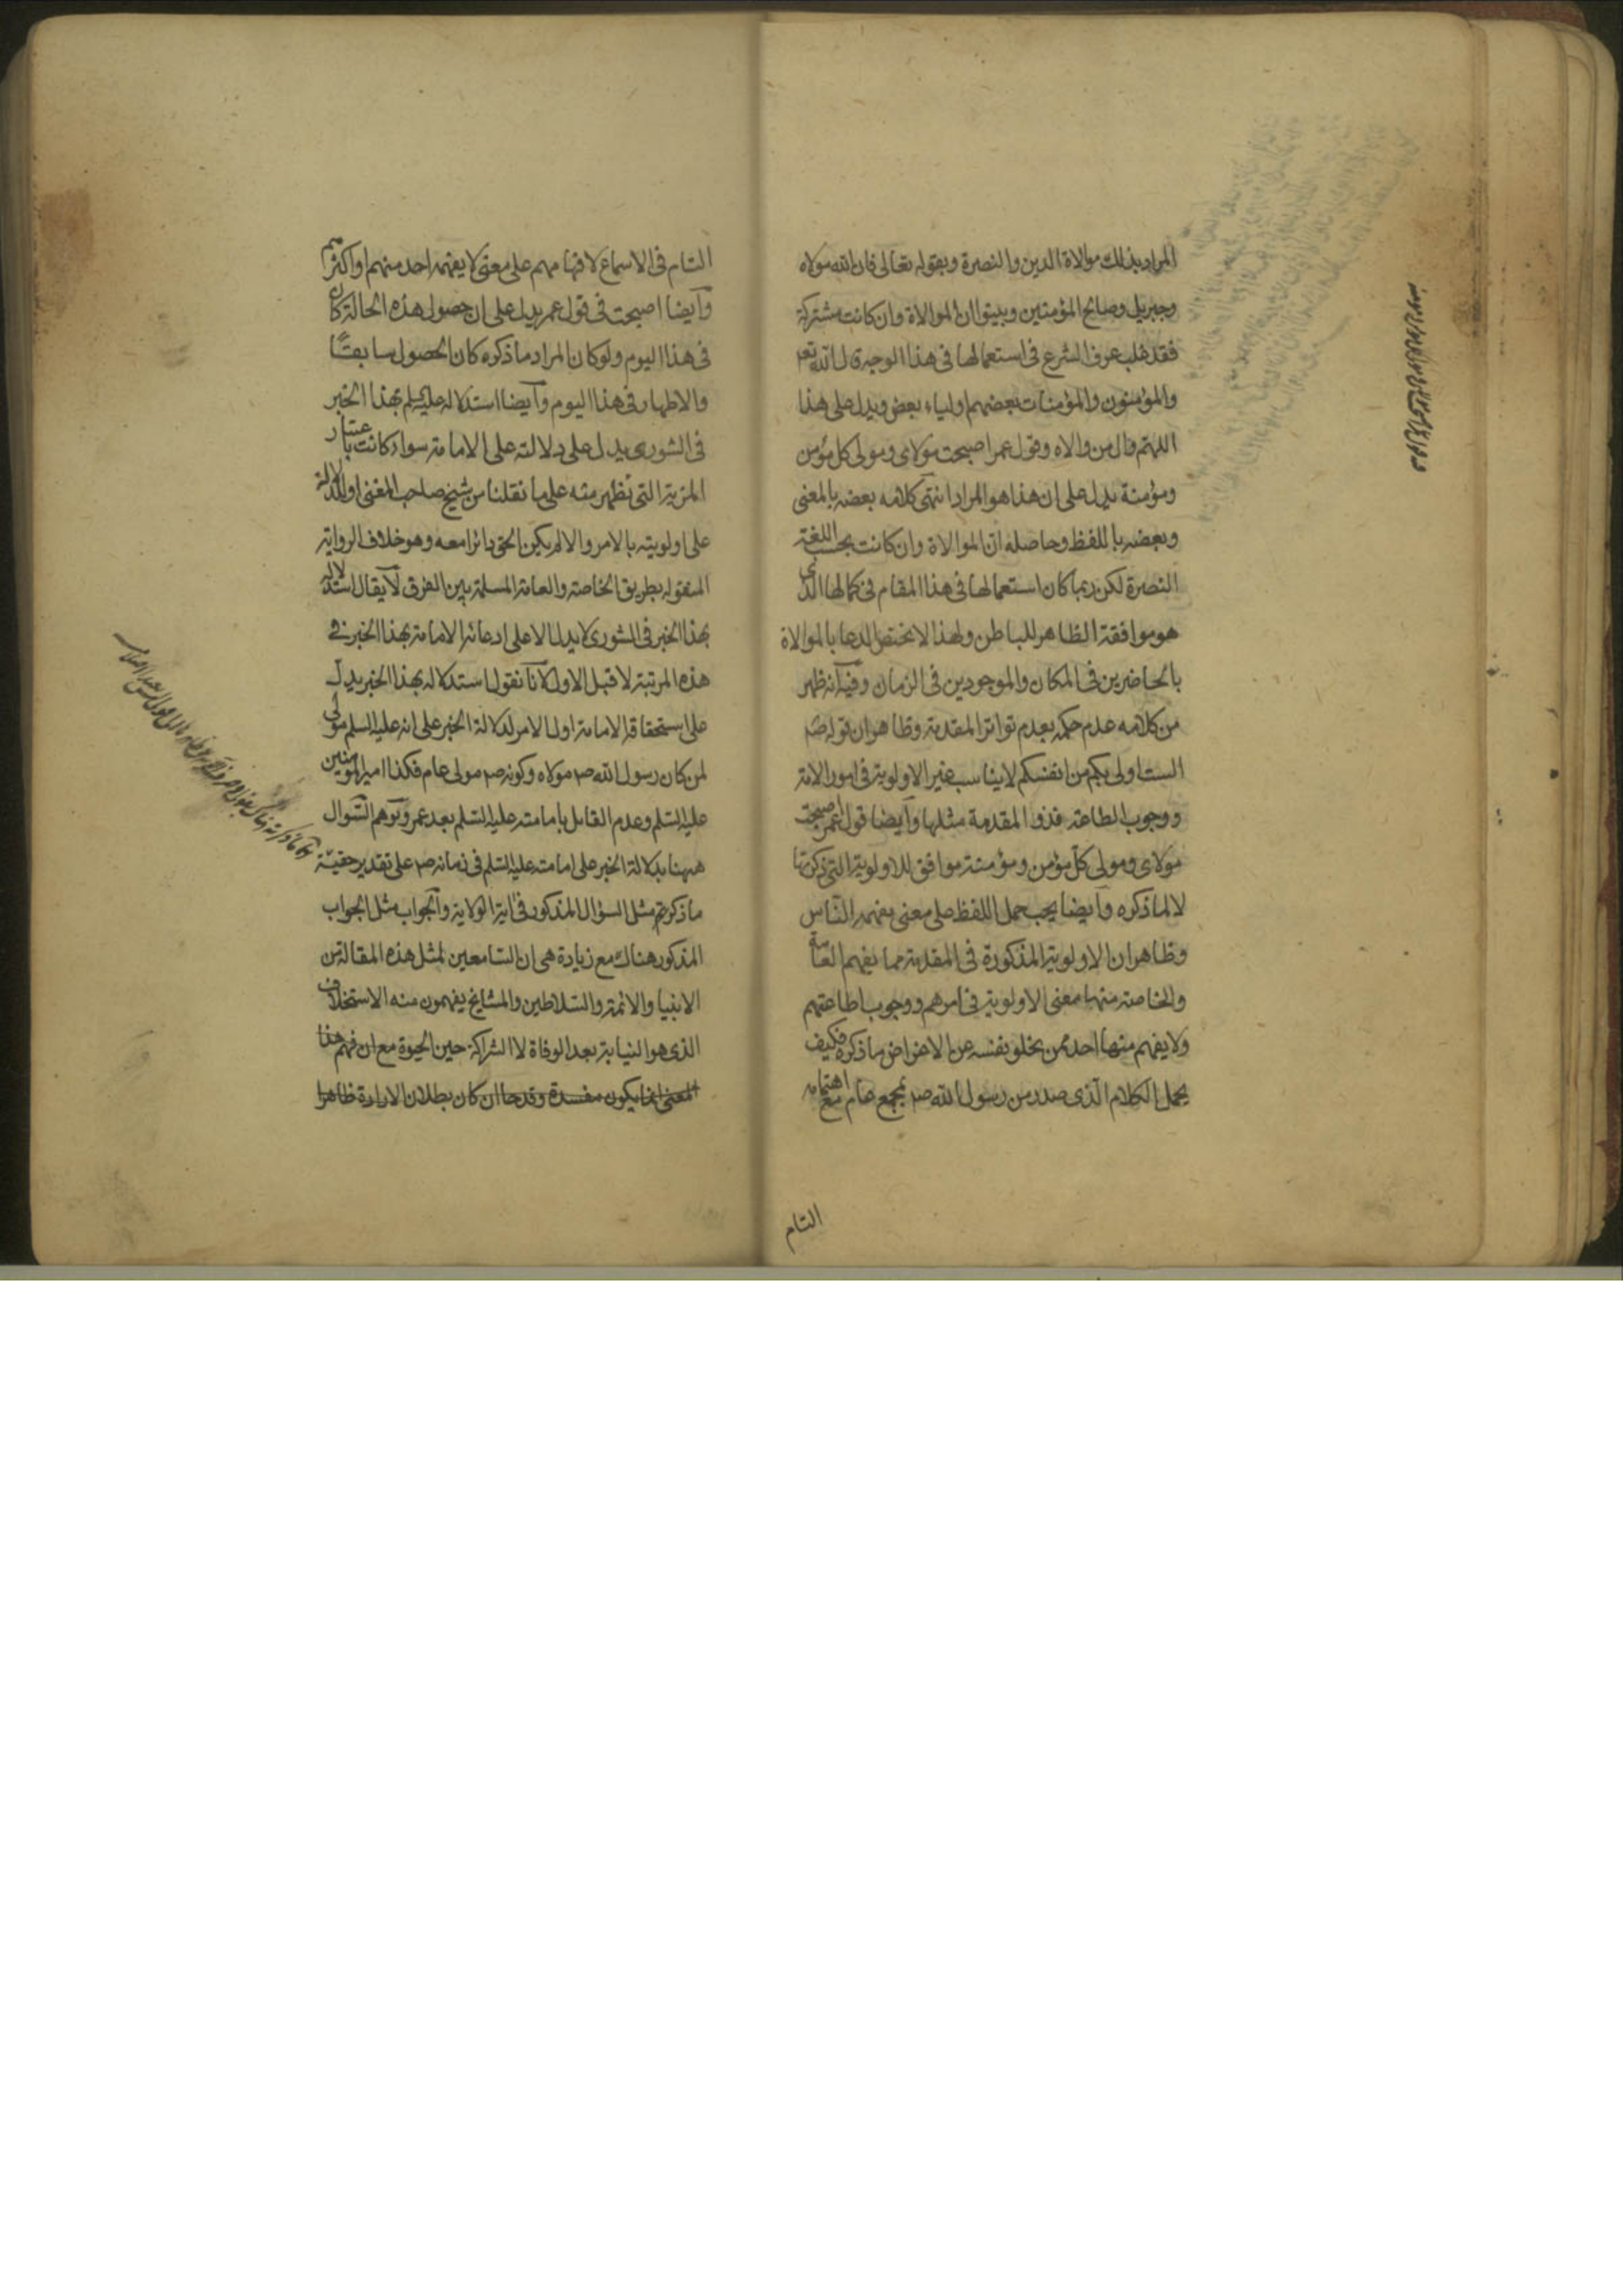 المراد بذلك موالاة الدين والنصرة وبقوله تعالى فان الله مولاه
وجبريل وصالح المؤمنين وبينوا ان الموالاة وان كانت مشتركة
فقد غلب عرف الشرع فى استعمالها فى هذا الوجه قال الله تعم
والمؤمنون والمؤمنات بعضهم اولياء بعض ويدل على هذا
اللهم وال من والاه وقول عمر اصبحت مولاى ومولى كل مؤمن
ومؤمنة يدل على ان هذا هو المراد انتهى كلامه بعضه بالمعنى
وبعضه باللفظ وحاصله ان الموالاة وان كانت بحسب اللغة
النصرة لكن ربما كان استعمالها فى هذا المقام فى كمالها الذى
هو موافقة الظاهر للباطن ولهذا لا يختص الدعا بالموالاة
بالحاضرين فى المكان والموجودين فى الزمان وفيه انه ظهر
من كلامه عدم حكمه بعدم تواتر المقدمة وظاهر ان قوله صم
الست اولى بكم من انفسكم لا يناسب غير الاولوية فى امور الامة
ووجوب الطاعة فذو المقدمة مثلها وآيضا قول عمر اصبحت
مولاى ومولى كل مؤمن ومؤمنة موافق للاولوية التى ذكرتها
لا لما ذكره وآيضا يجب حمل اللفظ على معنى يفهمه الناس
وظاهر ان الاولوية المذكورة فى المقدمة مما يفهم العامة
والخاصة منها معنى الاولوية فى امرهم ووجوب اطاعتهم
ولا يفهم منها احد ممن يخلو نفسه عن الاغراض ما ذكره فكيف
يحمل الكلام الذى صدر من رسول الله صم بمجمع عام مع اهتمامه
التام
التام فى الاسماع لافهامهم على معنى لا يفهمه احد منهم او اكثرهم
وآيضا اصبحت فى قول عمر يدل على ان حصول هذه الحالة كان
فى هذا اليوم ولو كان المراد ما ذكره كان الحصول سابقا
والاظهار فى هذا اليوم وآيضا استدلاله عليه السلم بهذا الخبر
فى الشورى يدل على دلالته على الامامة سواء كانت باعتبار
المزية التى تظهر منه على ما نقلنا من شيخ صاحب المغنى او الدلالة
على اولويته بالامر والا لم يكن الحق دائرا معه وهو خلاف الرواية
المنقولة بطريق الخاصة والعامة المسلمة بين الفرق لا يقال استدلاله
بهذا الخبر فى الشورى لا يدل الا على ادعائه الامامة بهذا الخبر فى
هذه المرتبة لا قبل الاول لانا نقول استدلاله بهذا الخبر يدل
على استحقاقه الامامة اول الامر لدلالة الخبر على انه عليه السلم مولى
لمن كان رسول الله صم مولاه وكونه صم مولى عام فكذا امير المؤمنين
عليه السلم وعدم القائل بامامته عليه السلم بعد عمر وتوهم السؤال
ههنا بدلالة الخبر على امامته عليه السلم فى زمانه صم على تقدير حقية
ما ذكرتم مثل السؤال المذكور فى آية الولاية والجواب مثل الجواب
المذكور هناك مع زيادة هى ان السامعين لمثل هذه المقالة من
الانبيا والائمة والسلاطين والمشايخ يفهمون منه الاستخلاف
الذى هو النيابة بعد الوفاة لا الشراكة حين الحيوة مع ان فهم هذا
المعنى انما يكون مفسدة وقدحا ان كان بطلان الارادة ظاهرا